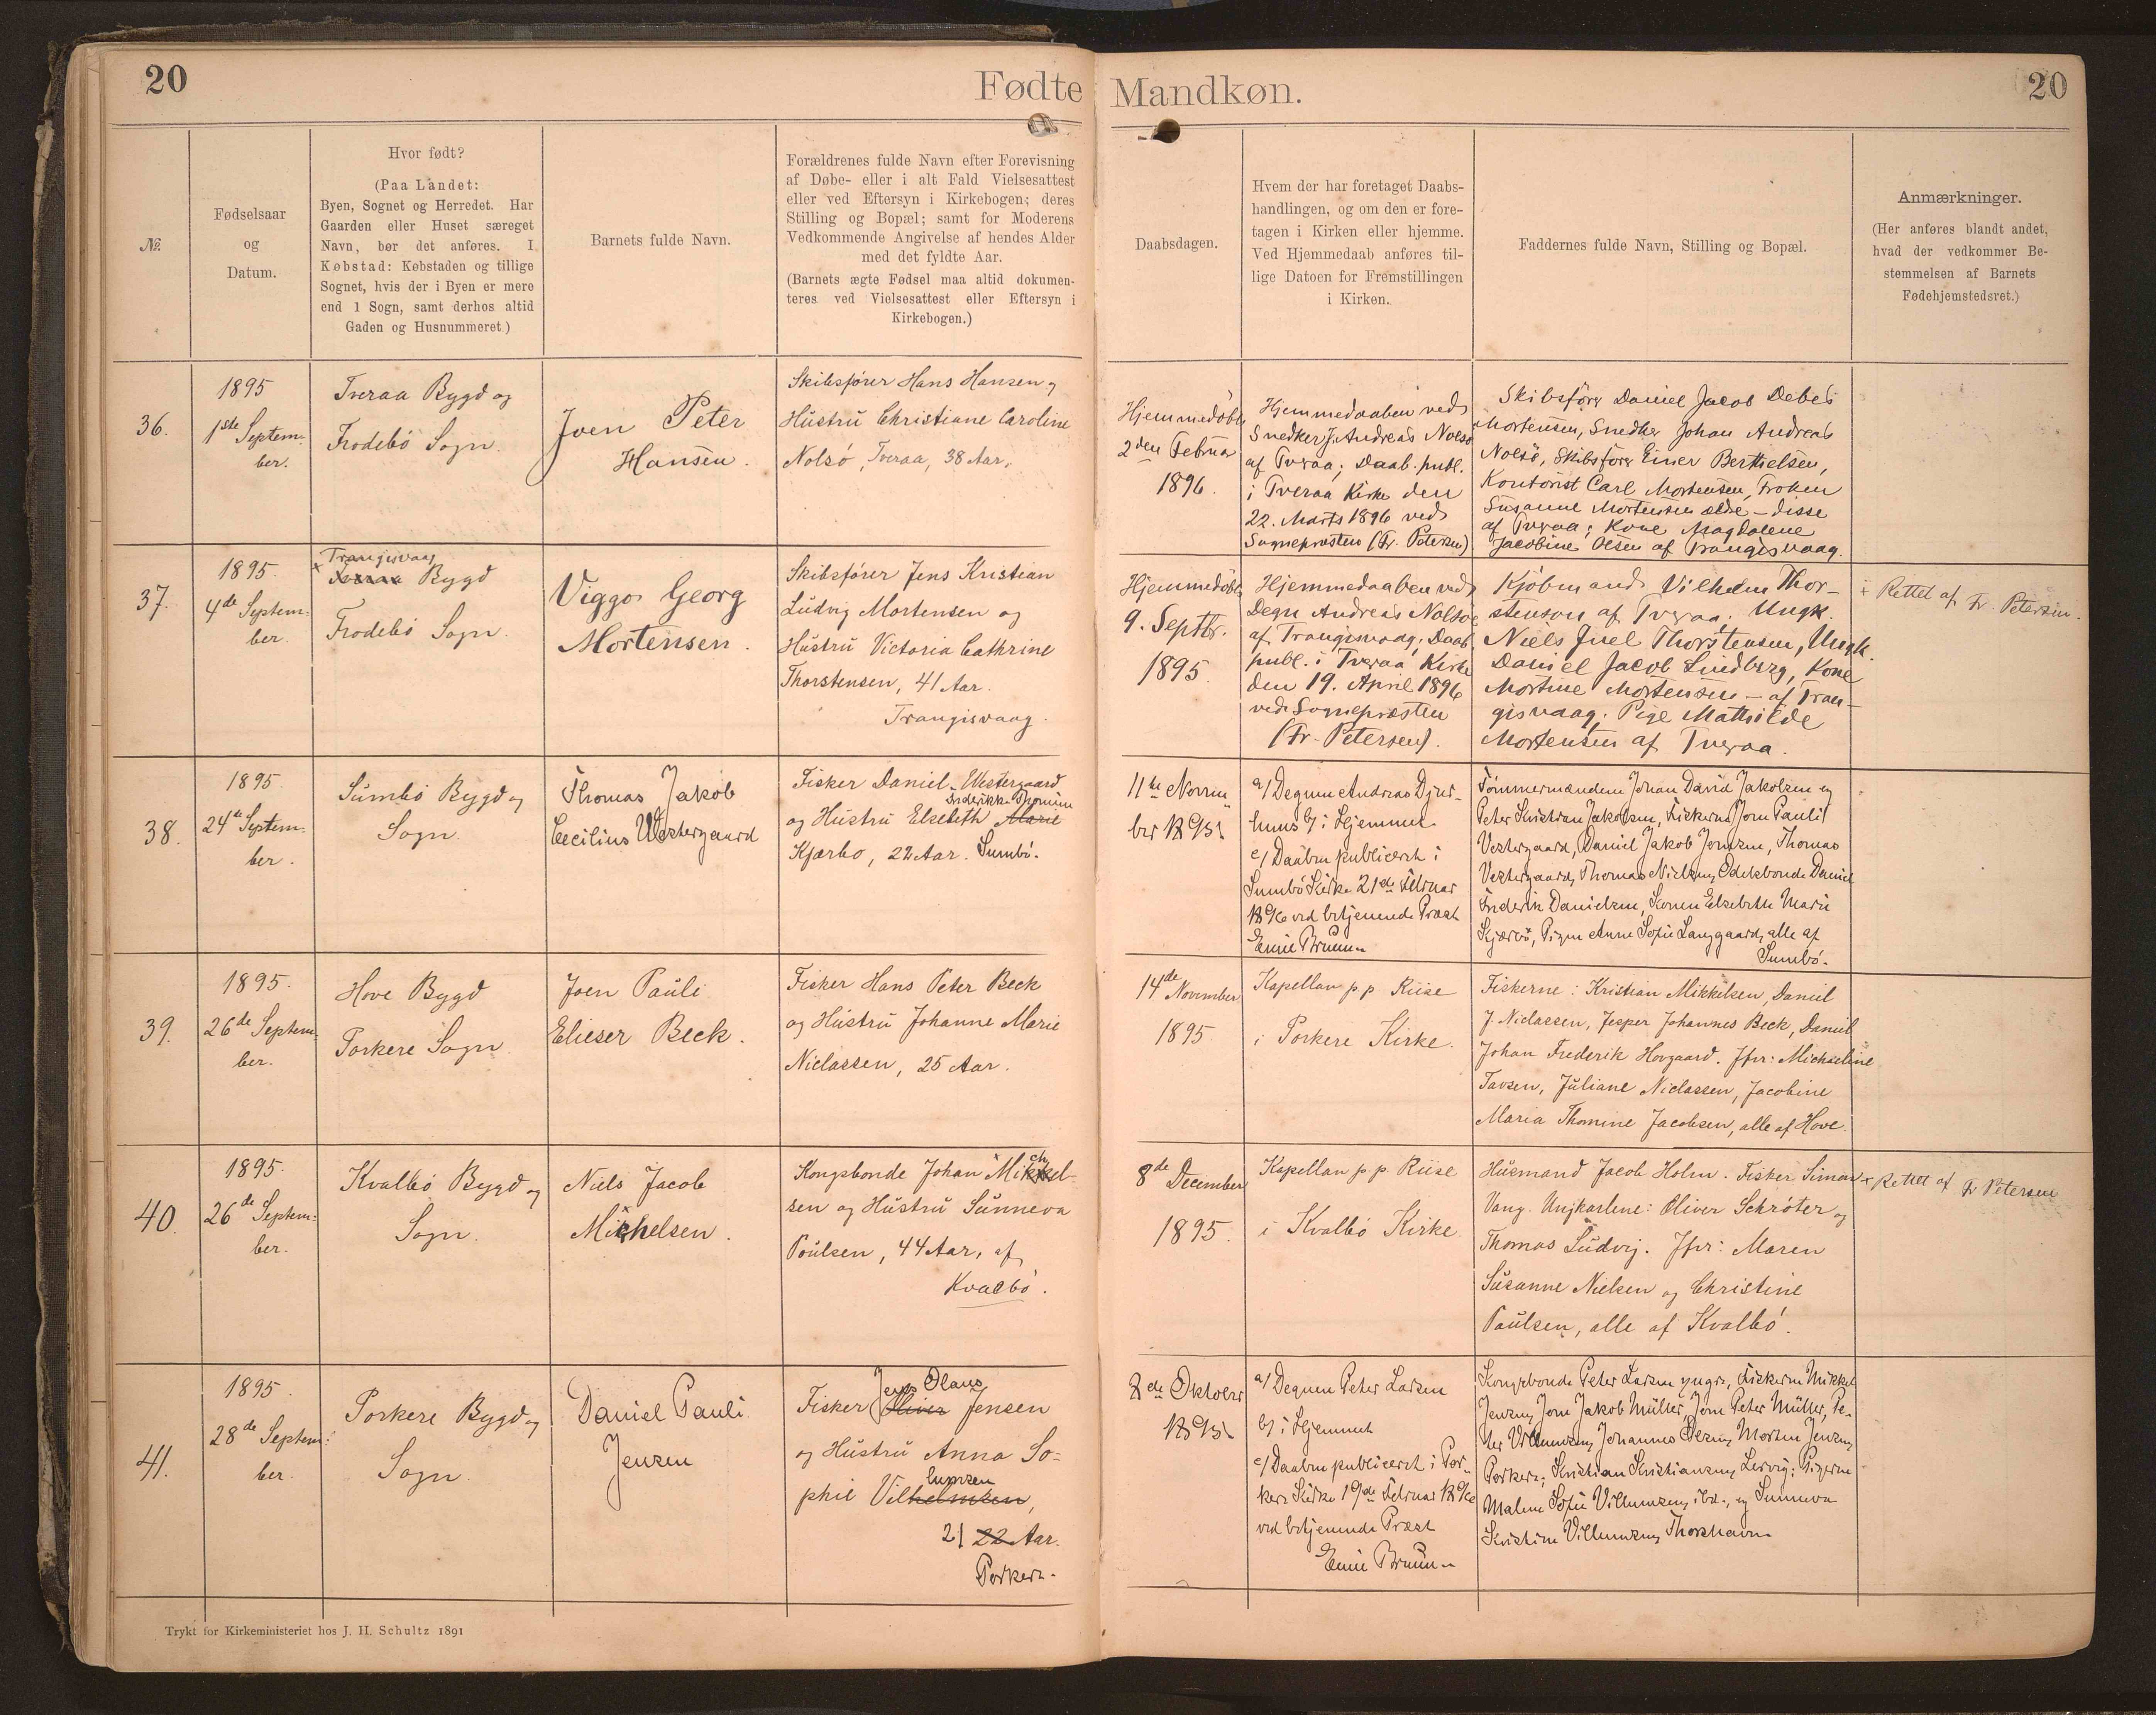 20
Fødte
Mandkøn.
20
№
Fødselsaar
og
Datum.
Hvor født?
(Paa Landet:
Byen, Sognet og Herredet. Har
Gaarden eller Huset særeget
Navn, bør det anføres. I
Købstad: Købstaden og tillige
Sognet, hvis der i Byen er mere
end 1 Sogn, samt derhos altid
Gaden og Husnummeret.)
Barnets fulde Navn.
Forældrenes fulde Navn efter Forevisning
af Døbe- eller i alt Fald Vielsesattest
eller ved Eftersyn i Kirkebogen; deres
Stilling og Bopæl; samt for Moderens
Vedkommende Angivelse af hendes Alder
med det fyldte Aar.
(Barnets ægte Fødsel maa altid dokumen-
teres ved Vielsesattest eller Eftersyn i
Kirkebogen.)
Daabsdagen.
Hvem der har foretaget Daabs-
handlingen, og om den er fore-
tagen i Kirken eller hjemme.
Ved Hjemmedaab anføres til-
lige Datoen for Fremstillingen
i Kirken.
Faddernes fulde Navn, Stilling og Bopæl.
Anmærkninger.
(Her anføres blandt andet,
hvad der vedkommer Be-
stemmelsen af Barnets
Fødehjemstedsret.)
36.
1895
1ste Septem-
ber.
Tveraa Bygd og
Frodebö Sogn.
Joen Peter
Hansen.
Skibsfører Hans Hansen og
Hustru Christiane Caroline
Nolsö, Tveraa, 38 Aar.
Hjemmedöbt
2den Februar
1896.
Hjemmedaaben ved
Snedker J. Andreas Nolsö
af Tveraa; Daab. publ.
i Tveraa Kirke den
22. Marts 1896 ved
Sognepræsten (Fr. Petersen)
Skibsförer Daniel Jacob Debes
Mortensen, Snedker Johan Andreas
Nolsö, Skibsförer Einer Berthelsen,
Kontorist Carl Mortensen, Fröken
Susanne Mortensen ældre - disse
af Tveraa; Kone Magdalene
Jacobine Olsen af Trangisvaag.
37.
1895.
4de Septem-
ber.
Trangisvaag
× Tveraa Bygd
Frodebö Sogn.
Viggo Georg
Mortensen.
Skibsfører Jens Kristian
Ludvig Mortensen og
Hustru Victoria Cathrine
Thorstensen, 41 Aar.
Trangisvaag.
Hjemmedöbt
9. Septbr.
1895.
Hjemmedaaben ved
Degn Andreas Nolsöe
af Trangisvaag; Daab.
publ. i Tveraa Kirke
den 19. April 1896
ved Sognepræsten
(Fr. Petersen).
Kjöbmand Vilhelm Thor-
stensen af Tveraa; Ungk.
Niels Juel Thorstensen, Ungk.
Daniel Jacob Lindberg, Kone
Mortine Mortensen - af Tran-
gisvaag; Pige Mathilde
Mortensen af Tveraa.
× Rettet af Fr. Petersen.
38.
1895.
24de Septem-
ber.
Sumbö Bygd og
Sogn.
Thomas Jakob
Cecilius Vestergaard
Fisker Daniel Vestergaard
Frederikke Thomine
og Hustru Elsebeth Marie
Kjærbo, 22 Aar. Sumbö.
11te Novem-
ber 1895
a/ Degnen Andreas Djur-
huus b/ i Hjemmet
c/ Daaben publiceret i
Sumbö Kirke 21de Februar
1896 ved betjenende Præst
Emil Bruun
Tømmermændene Johan David Jakobsen og
Peter Kristian Jakobsen, Fiskerne Joen Pauli
Vestergaard, Daniel Jakob Joensen, Thomas
Vestergaard, Thomas Nielsen, Odelsbonde Daniel
Frederik Danielsen, Konen Elsebeth Marie
Kjærbö, Pigen Anne Sofie Langgaard, alle af
Sumbö.
39.
1895.
26de Septem-
ber.
Hove Bygd
Porkere Sogn.
Joen Pauli
Elieser Beck.
Fisker Hans Peter Beck
og Hustru Johanne Marie
Niclassen, 25 Aar.
14de November
1895.
Kapellan p. p. Riise
i Porkere Kirke.
Fiskerne: Kristian Mikkelsen, Daniel
J. Niclassen, Jesper Johannes Beck, Daniel
Johan Frederik Hovgaard. Jfrr: Michaeline
Tavsen, Juliane Niclassen, Jacobine
Maria Thomine Jacobsen, alle af Hove.
40.
1895.
26de Septem-
ber.
Kvalbö Bygd og
Sogn.
Niels Jacob
Michelsen.
ch
Kongsbonde Johan Mikkel-
sen og Hustru Sunneva
Poulsen, 44 Aar, af
Kvalbö.
8de December
1895.
Kapellan p. p. Riise
i Kvalbö Kirke
Husmand Jacob Holm. Fisker Simon
Vang. Ungkarlene: Oliver Schröter og
Thomas Ludvig. Jfrr: Maren
Susanne Nielsen og Christine
Paulsen, alle af Kvalbö.
× Rettet af Fr Petersen
41.
1895.
28de Septem-
ber.
Porkere Bygd og
Sogn.
Daniel Pauli
Jensen
Jens Olaus
Fisker Oliver Jensen
og Hustru Anna So-
phie Vilhelmsen,
lumsen
21 22 Aar.
Porkere.
2den Oktober
1895
a/ Degnen Peter Larsen
b/ i Hjemmet
c/ Daaben publiceret i Por-
kere Kirke 19de Februar 1896
ved betjenende Præst
Emil Bruun
Kongsbonde Peter Larsen yngre, Fiskerne Mikkel
Jensen, Joen Jakob Müller, Joen Peter Müller, Pe-
ter Villumsen, Johannes Olsen, Morten Jensen,
Porkere; Kristian Kristiansen, Lervig; Pigerne
Malene Sofie Villumsen, ibd., og Sunneva
Kristine Villumsen, Thorshavn
Trykt for Kirkeministeriet hos J. H. Schultz 1891